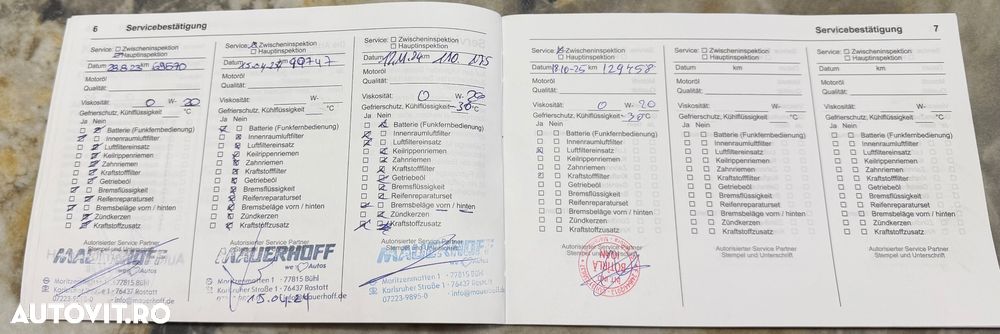 6 Servicebestätigung
Service: Zwischeninspektion
Hauptinspektion
Datum 28.8.23 km 69570
Motoröl
Qualität:
Viskosität: 0 W- 20
Gefrierschutz, Kühlflüssigkeit: °C
Ja Nein
Batterie (Funkfernbedienung)
Innenraumluftfilter
Luftfiltereinsatz
Keilrippenriemen
Zahnriemen
Kraftstofffilter
Getriebeöl
Bremsflüssigkeit
Reifenreparaturset
Bremsbeläge vorn / hinten
Zündkerzen
Kraftstoffzusatz
Autorisierter Service Partner
Stempel und Unterschrift
MAUERHOFF
we Autos
Moritzenmatten 1 · 77815 Bühl
Karlsruher Straße 1 · 76437 Rastatt
07223-9895-0
Service: Zwischeninspektion
Hauptinspektion
Datum 15.04.24 km 99747
Motoröl
Qualität:
Viskosität: W-
Gefrierschutz, Kühlflüssigkeit: °C
Ja Nein
Batterie (Funkfernbedienung)
Innenraumluftfilter
Luftfiltereinsatz
Keilrippenriemen
Zahnriemen
Kraftstofffilter
Getriebeöl
Bremsflüssigkeit
Reifenreparaturset
Bremsbeläge vorn / hinten
Zündkerzen
Kraftstoffzusatz
Autorisierter Service Partner
MAUERHOFF
we Autos
77815 Bühl
76437 Rastatt
15.04.24
Service: Zwischeninspektion
Hauptinspektion
Datum 12.11.24 km 110 175
Motoröl
Qualität:
Viskosität: 0 W- 20
Gefrierschutz, Kühlflüssigkeit: -38 °C
Ja Nein
Batterie (Funkfernbedienung)
Innenraumluftfilter
Luftfiltereinsatz
Keilrippenriemen
Zahnriemen
Kraftstofffilter
Getriebeöl
Bremsflüssigkeit
Reifenreparaturset
Bremsbeläge vorn / hinten
Zündkerzen
Kraftstoffzusatz
Autorisierter Service Partner
Stempel und Unterschrift
MAUERHOFF
we Autos
Moritzenmatten 1 · 77815 Bühl
Karlsruher Straße 1 · 76437 Rastatt
07223-9895-0
Servicebestätigung 7
Service: Zwischeninspektion
Hauptinspektion
Datum 10-25 km 129458
Motoröl
Qualität:
Viskosität: 0 W- 20
Gefrierschutz, Kühlflüssigkeit: °C
Ja Nein
Batterie (Funkfernbedienung)
Innenraumluftfilter
Luftfiltereinsatz
Keilrippenriemen
Zahnriemen
Kraftstofffilter
Getriebeöl
Bremsflüssigkeit
Reifenreparaturset
Bremsbeläge vorn / hinten
Zündkerzen
Kraftstoffzusatz
Autorisierter Service Partner
Stempel und Unterschrift
IOAN
Service: Zwischeninspektion
Hauptinspektion
Datum km
Motoröl
Qualität:
Viskosität: W-
Gefrierschutz, Kühlflüssigkeit: °C
Ja Nein
Batterie (Funkfernbedienung)
Innenraumluftfilter
Luftfiltereinsatz
Keilrippenriemen
Zahnriemen
Kraftstofffilter
Getriebeöl
Bremsflüssigkeit
Reifenreparaturset
Bremsbeläge vorn / hinten
Zündkerzen
Kraftstoffzusatz
Autorisierter Service Partner
Stempel und Unterschrift
Service: Zwischeninspektion
Hauptinspektion
Datum km
Motoröl
Qualität:
Viskosität: W-
Gefrierschutz, Kühlflüssigkeit: °C
Ja Nein
Batterie (Funkfernbedienung)
Innenraumluftfilter
Luftfiltereinsatz
Keilrippenriemen
Zahnriemen
Kraftstofffilter
Getriebeöl
Bremsflüssigkeit
Reifenreparaturset
Bremsbeläge vorn / hinten
Zündkerzen
Kraftstoffzusatz
Autorisierter Service Partner
Stempel und Unterschrift
AUTOVIT.RO